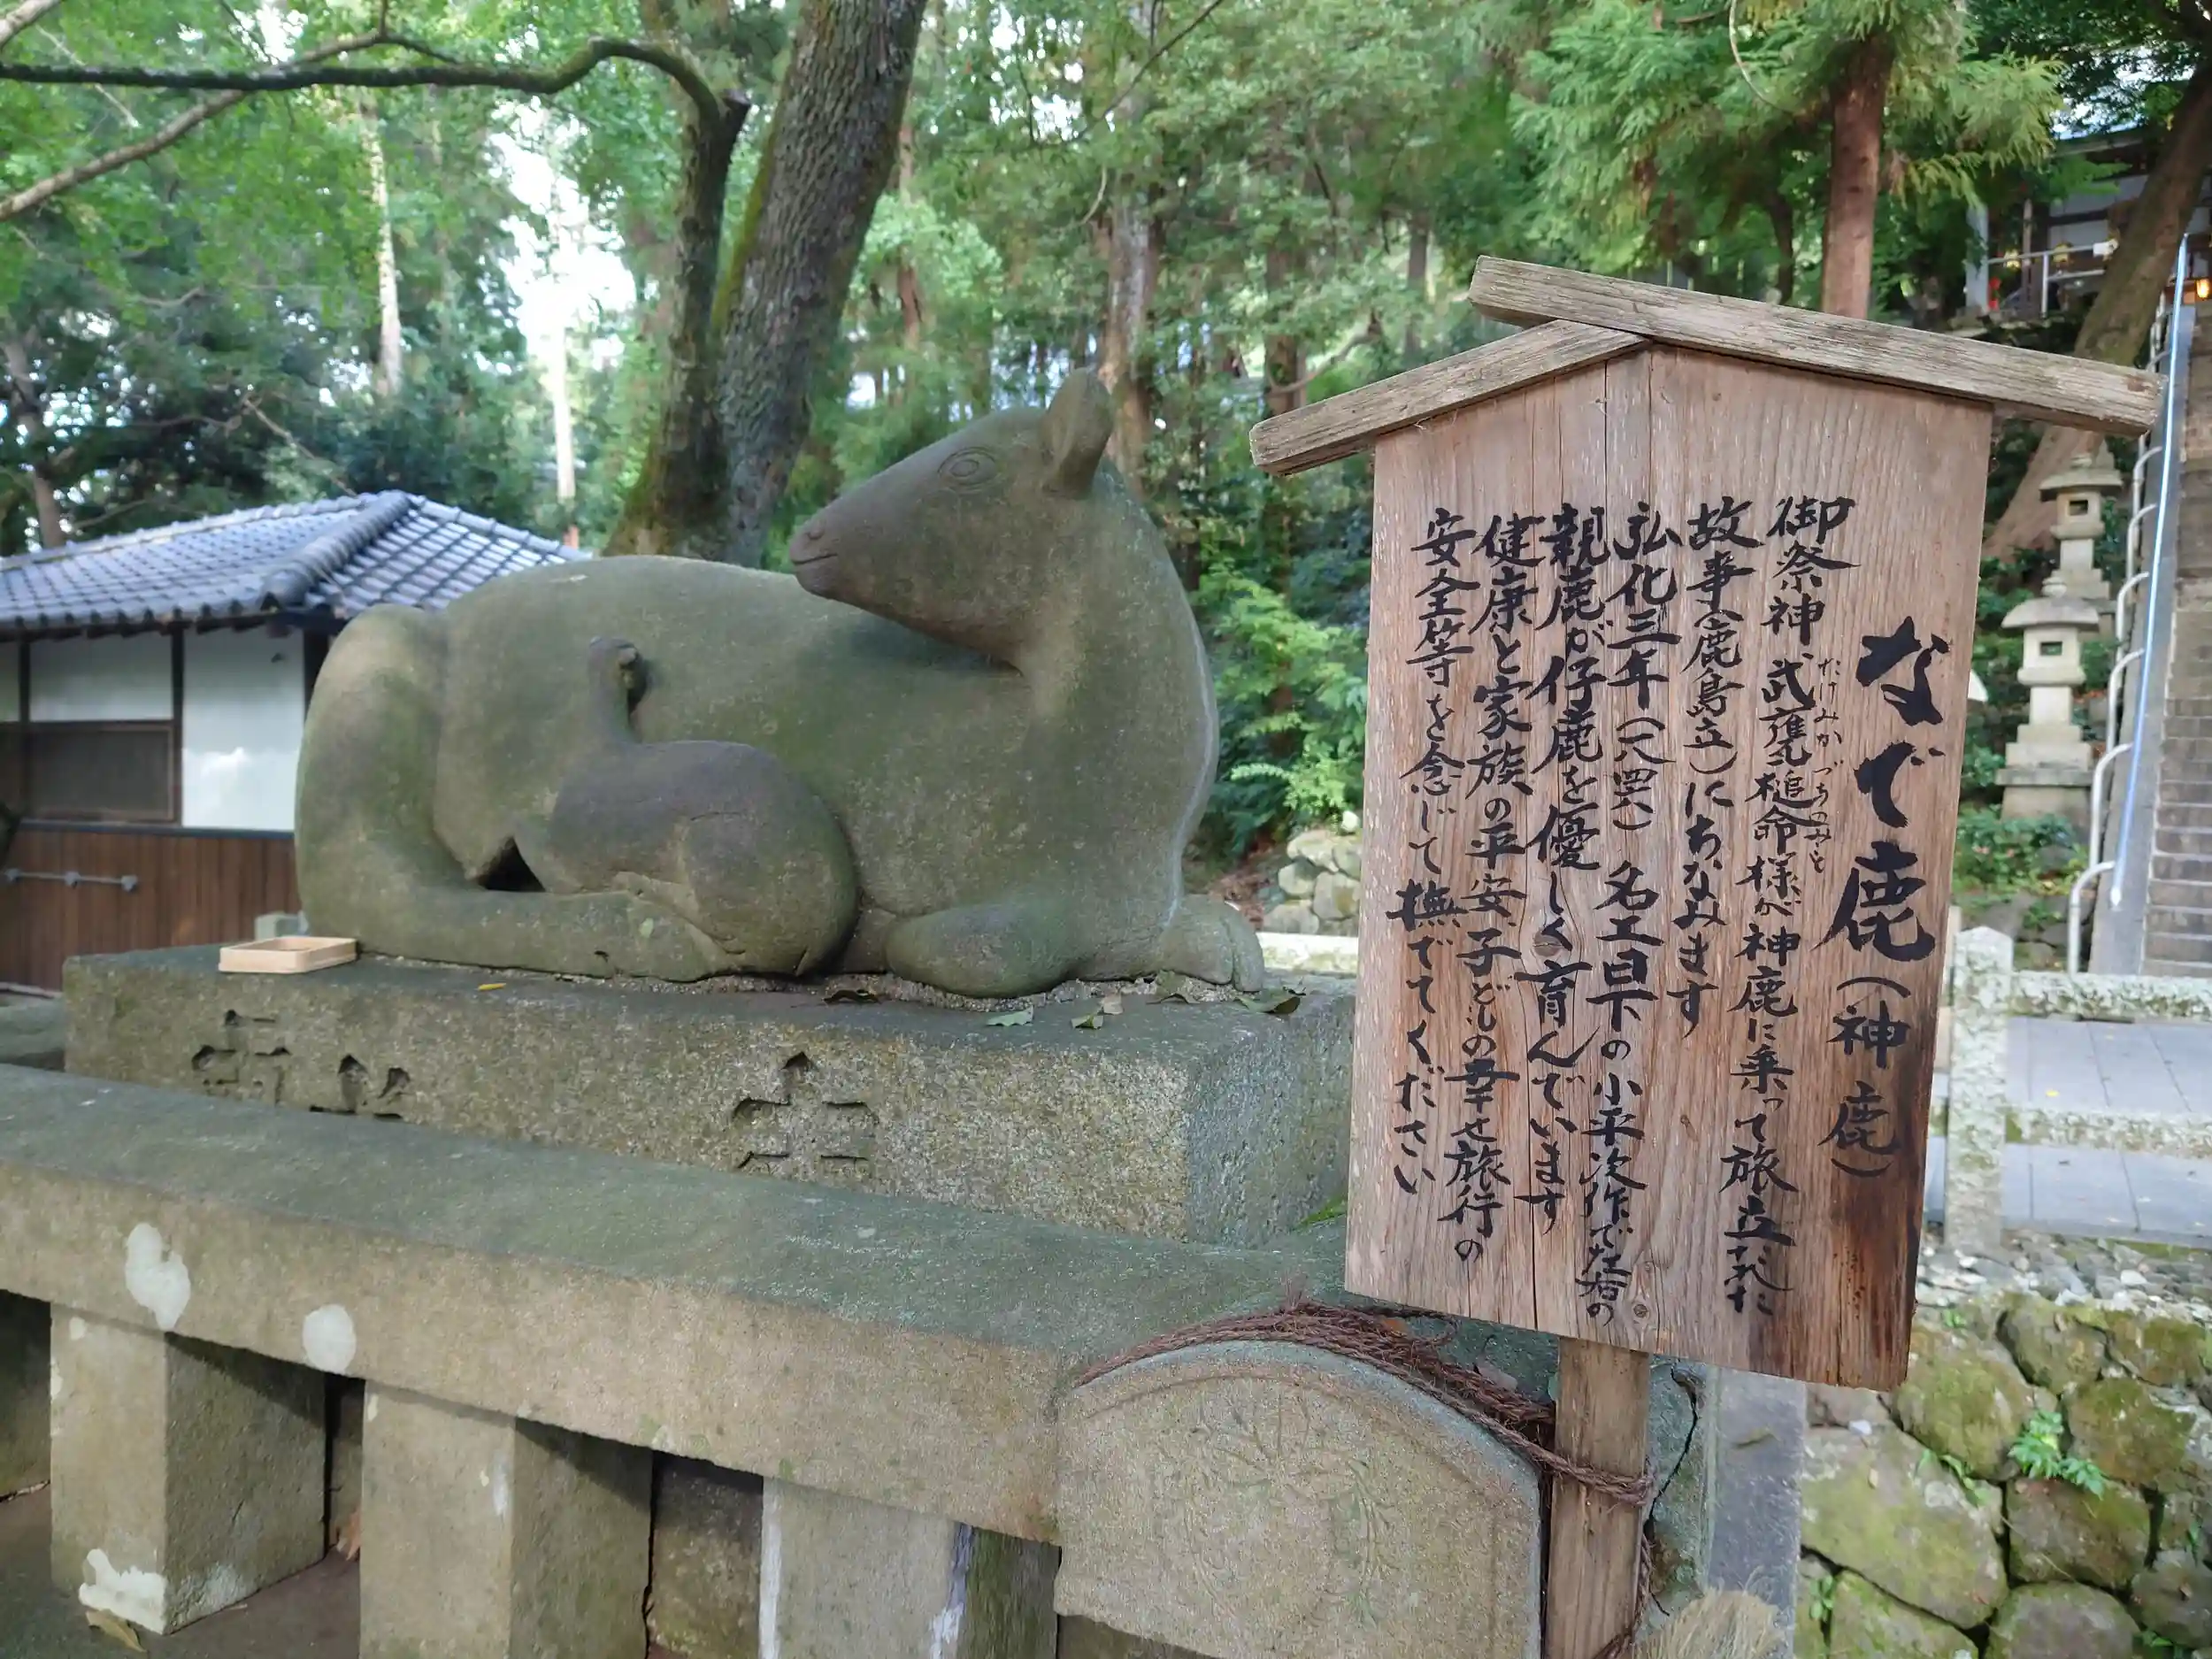 なで鹿（神鹿）
御祭神 武甕槌命様が神鹿に乗って旅立たれた
たけみかづちのみこと
故事（鹿島立）にちなみます
弘化三年（一八四六）名工日下の小平次作で左右の
親鹿が仔鹿を優しく育んでいます
健康と家族の平安子どもの幸せ旅行の
安全等を念じて撫でてください